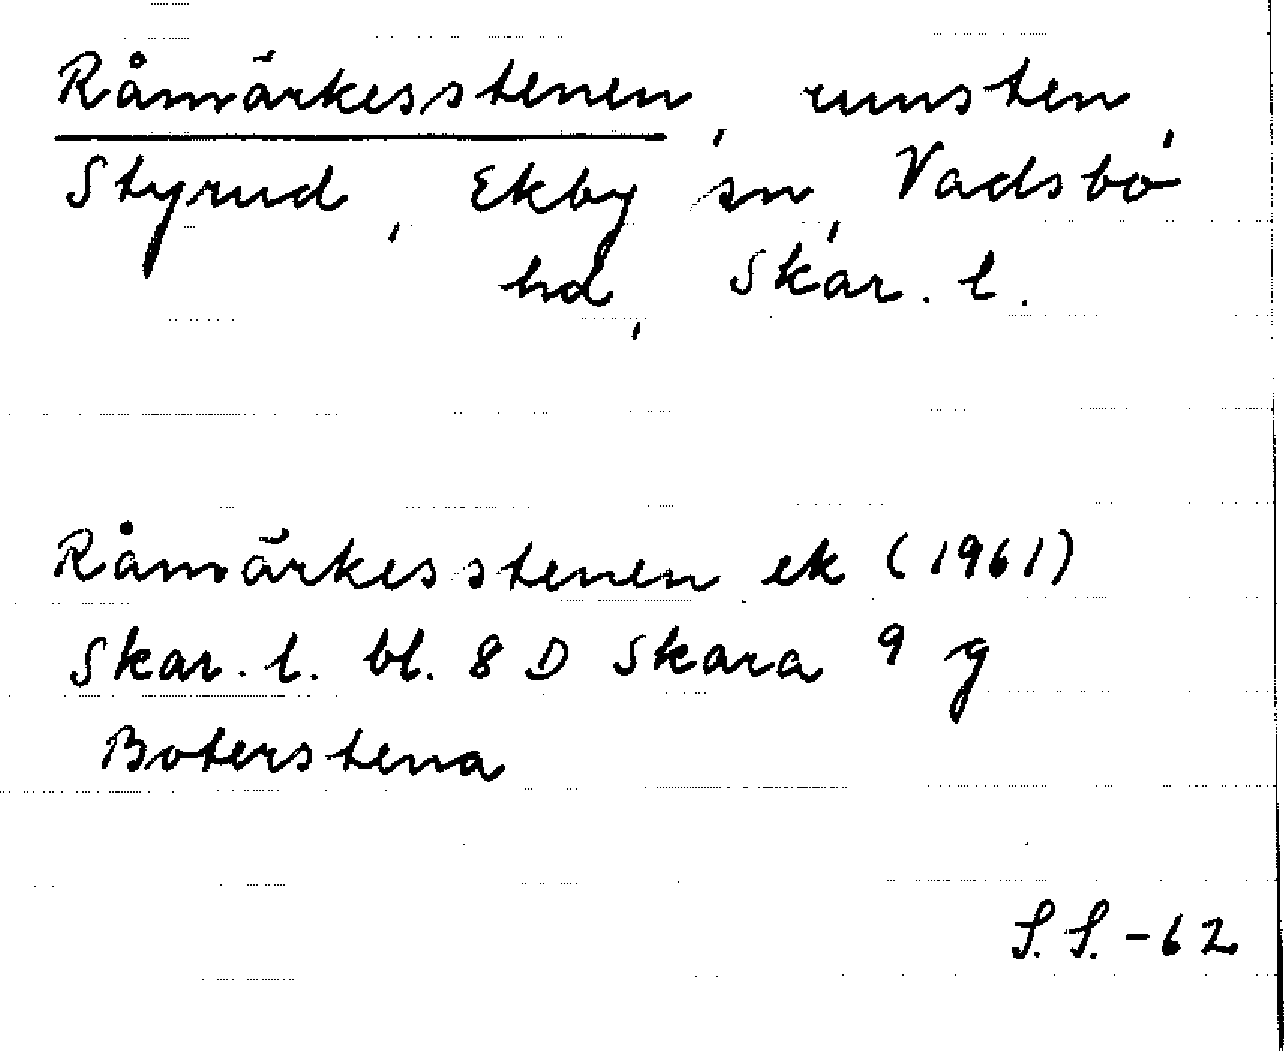 Råmärkesstenen, runsten,
Styrud, Ekby sn, Vadsbo
hd, Skar. l.
Råmärkesstenen ek (1961)
Skar. l. bl. 8 D Skara 9 g
Boterstena
S.S.-62